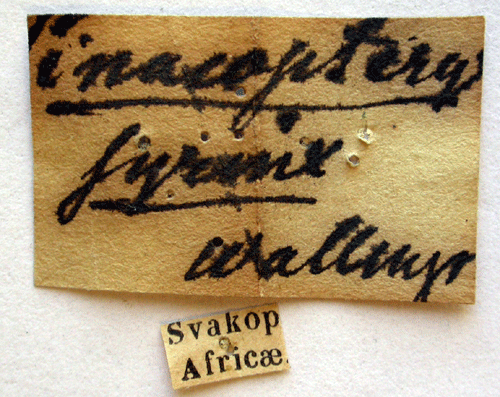 inacoptery
Syrinx
wallengr
Svakop
Africæ.